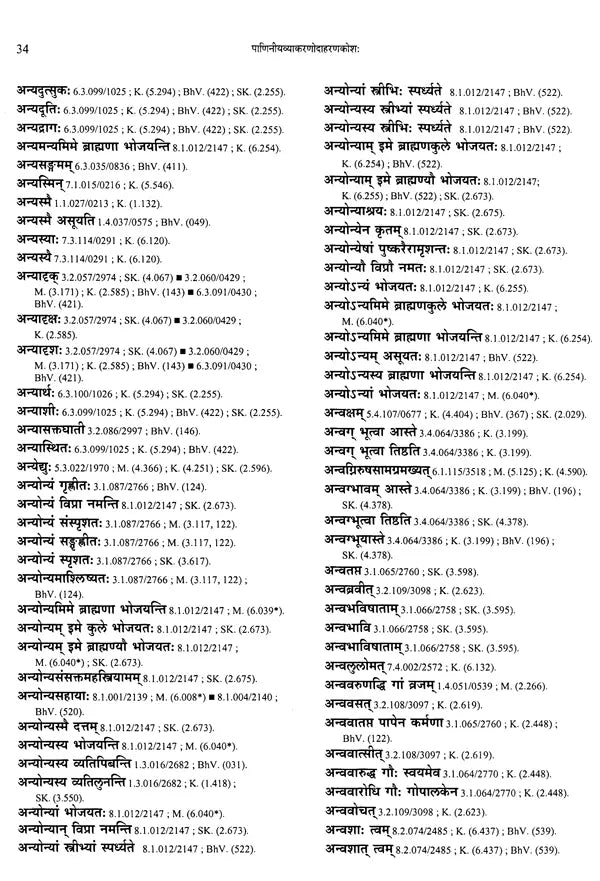 34
पाणिनीयव्याकरणोदाहरणकोशः
अन्यदुत्सुकः 6.3.099/1025 ; K. (5.294) ; BhV. (422) ; SK. (2.255).
अन्यदूतिः 6.3.099/1025 ; K. (5.294) ; BhV. (422) ; SK. (2.255).
अन्यद्रागः 6.3.099/1025 ; K. (5.294) ; BhV. (422) ; SK. (2.255).
अन्यमन्यमिमे ब्राह्मणा भोजयन्ति 8.1.012/2147 ; K. (6.254).
अन्यसङ्गमम् 6.3.035/0836 ; BhV. (411).
अन्यस्मिन् 7.1.015/0216 ; K. (5.546).
अन्यस्मै 1.1.027/0213 ; K. (1.132).
अन्यस्मै असूयति 1.4.037/0575 ; BhV. (049).
अन्यस्याः 7.3.114/0291 ; K. (6.120).
अन्यस्यै 7.3.114/0291 ; K. (6.120).
अन्यादृक् 3.2.057/2974 ; SK. (4.067) ■ 3.2.060/0429 ;
M. (3.171) ; K. (2.585) ; BhV. (143) ■ 6.3.091/0430 ;
BhV. (421).
अन्यादृक्षः 3.2.057/2974 ; SK. (4.067) ■ 3.2.060/0429 ;
K. (2.585).
अन्यादृशः 3.2.057/2974 ; SK. (4.067) ■ 3.2.060/0429 ;
M. (3.171) ; K. (2.585) ; BhV. (143) ■ 6.3.091/0430 ;
BhV. (421).
अन्यार्थः 6.3.100/1026 ; K. (5.294) ; SK. (2.255).
अन्याशी: 6.3.099/1025 ; K. (5.294) ; BhV. (422) ; SK. (2.255).
अन्यासक्तघाती 3.2.086/2997 ; BhV. (146).
अन्यास्थितः 6.3.099/1025 ; K. (5.294) ; BhV. (422).
अन्येद्युः 5.3.022/1970 ; M. (4.366) ; K. (4.251) ; SK. (2.596).
अन्योन्यं गृह्णीतः 3.1.087/2766 ; BhV. (124).
अन्योन्यं विप्रा नमन्ति 8.1.012/2147 ; SK. (2.673).
अन्योन्यं संस्पृशतः 3.1.087/2766 ; M. (3.117, 122).
अन्योन्यं सङ्गृह्णीतः 3.1.087/2766 ; M. (3.117, 122).
अन्योन्यं स्पृशतः 3.1.087/2766 ; SK. (3.617).
अन्योन्यमाश्लिष्यतः 3.1.087/2766 ; M. (3.117, 122) ;
BhV. (124).
अन्योन्यमिमे ब्राह्मणा भोजयन्ति 8.1.012/2147 ; M. (6.039*).
अन्योन्यम् इमे कुले भोजयतः 8.1.012/2147 ; SK. (2.673).
अन्योन्यम् इमे ब्राह्मण्यौ भोजयतः 8.1.012/2147 ;
M. (6.040*) ; SK. (2.673).
अन्योन्यसंसक्तमहस्त्रियामम् 8.1.012/2147 ; SK. (2.675).
अन्योन्यसहायाः 8.1.001/2139 ; M. (6.008*) ■ 8.1.004/2140 ;
BhV. (520).
अन्योन्यस्मै दत्तम् 8.1.012/2147 ; SK. (2.673).
अन्योन्यस्य भोजयन्ति 8.1.012/2147 ; M. (6.040*).
अन्योन्यस्य व्यतिपिबन्ति 1.3.016/2682 ; BhV. (031).
अन्योन्यस्य व्यतिलुनन्ति 1.3.016/2682 ; K. (1.418) ;
SK. (3.550).
अन्योन्यां भोजयतः 8.1.012/2147 ; M. (6.040*).
अन्योन्यान् विप्रा नमन्ति 8.1.012/2147 ; SK. (2.673).
अन्योन्यां स्त्रीभ्यां स्पर्ध्यते 8.1.012/2147 ; BhV. (522).
अन्योन्यां स्त्रीभिः स्पर्ध्यते 8.1.012/2147 ; BhV. (522).
अन्योन्यस्य स्त्रीभ्यां स्पर्ध्यते 8.1.012/2147 ; BhV. (522).
अन्योन्यस्य स्त्रीभिः स्पर्ध्यते 8.1.012/2147 ; BhV. (522).
अन्योन्याम् इमे ब्राह्मणकुले भोजयतः 8.1.012/2147 ;
K. (6.254) ; BhV. (522).
अन्योन्याम् इमे ब्राह्मण्यौ भोजयतः 8.1.012/2147;
K. (6.255) ; BhV. (522) ; SK. (2.673).
अन्योन्याश्रयः 8.1.012/2147 ; SK. (2.675).
अन्योन्येन कृतम् 8.1.012/2147 ; SK. (2.673).
अन्योन्येषां पुष्करैरामृशन्तः 8.1.012/2147 ; SK. (2.673).
अन्योन्यौ विप्रौ नमतः 8.1.012/2147 ; SK. (2.673).
अन्योऽन्यं भोजयतः 8.1.012/2147 ; K. (6.255).
अन्योऽन्यमिमे ब्राह्मणकुले भोजयतः 8.1.012/2147 ;
M. (6.040*).
अन्योऽन्यमिमे ब्राह्मणा भोजयन्ति 8.1.012/2147 ; K. (6.254).
अन्योऽन्यम् असूयतः 8.1.012/2147 ; BhV. (522).
अन्योऽन्यस्य ब्राह्मणा भोजयन्ति 8.1.012/2147 ; K. (6.254).
अन्योऽन्यां भोजयतः 8.1.012/2147 ; M. (6.040*).
अन्वक्षम् 5.4.107/0677 ; K. (4.404) ; BhV. (367) ; SK. (2.029).
अन्वग् भूत्वा आस्ते 3.4.064/3386 ; K. (3.199).
अन्वग् भूत्वा तिष्ठति 3.4.064/3386 ; K. (3.199).
अन्वग्निरुषसामग्रमख्यत् 6.1.115/3518 ; M. (5.125) ; K. (4.590).
अन्वग्भावम् आस्ते 3.4.064/3386 ; K. (3.199) ; BhV. (196) ;
SK. (4.378).
अन्वग्भूत्वा तिष्ठति 3.4.064/3386 ; SK. (4.378).
अन्वग्भूयास्ते 3.4.064/3386 ; K. (3.199) ; BhV. (196) ;
SK. (4.378).
अन्वतप्त 3.1.065/2760 ; SK. (3.598).
अन्वब्रवीत् 3.2.109/3098 ; K. (2.623).
अन्वभविषाताम् 3.1.066/2758 ; SK. (3.595).
अन्वभावि 3.1.066/2758 ; SK. (3.595).
अन्वभाविषाताम् 3.1.066/2758 ; SK. (3.595).
अन्वलुलोमत् 7.4.002/2572 ; K. (6.132).
अन्ववरुणद्धि गां व्रजम् 1.4.051/0539 ; M. (2.266).
अन्ववसत् 3.2.108/3097 ; K. (2.619).
अन्ववातप्त पापेन कर्मणा 3.1.065/2760 ; K. (2.448) ;
BhV. (122).
अन्ववात्सीत् 3.2.108/3097 ; K. (2.619).
अन्ववारुद्ध गौः स्वयमेव 3.1.064/2770 ; K. (2.448).
अन्ववारोधि गौः गोपालकेन 3.1.064/2770 ; K. (2.448).
अन्ववोचत् 3.2.109/3098 ; K. (2.623).
अन्वशाः त्वम् 8.2.074/2485 ; K. (6.437) ; BhV. (539).
अन्वशात् त्वम् 8.2.074/2485 ; K. (6.437) ; BhV. (539).